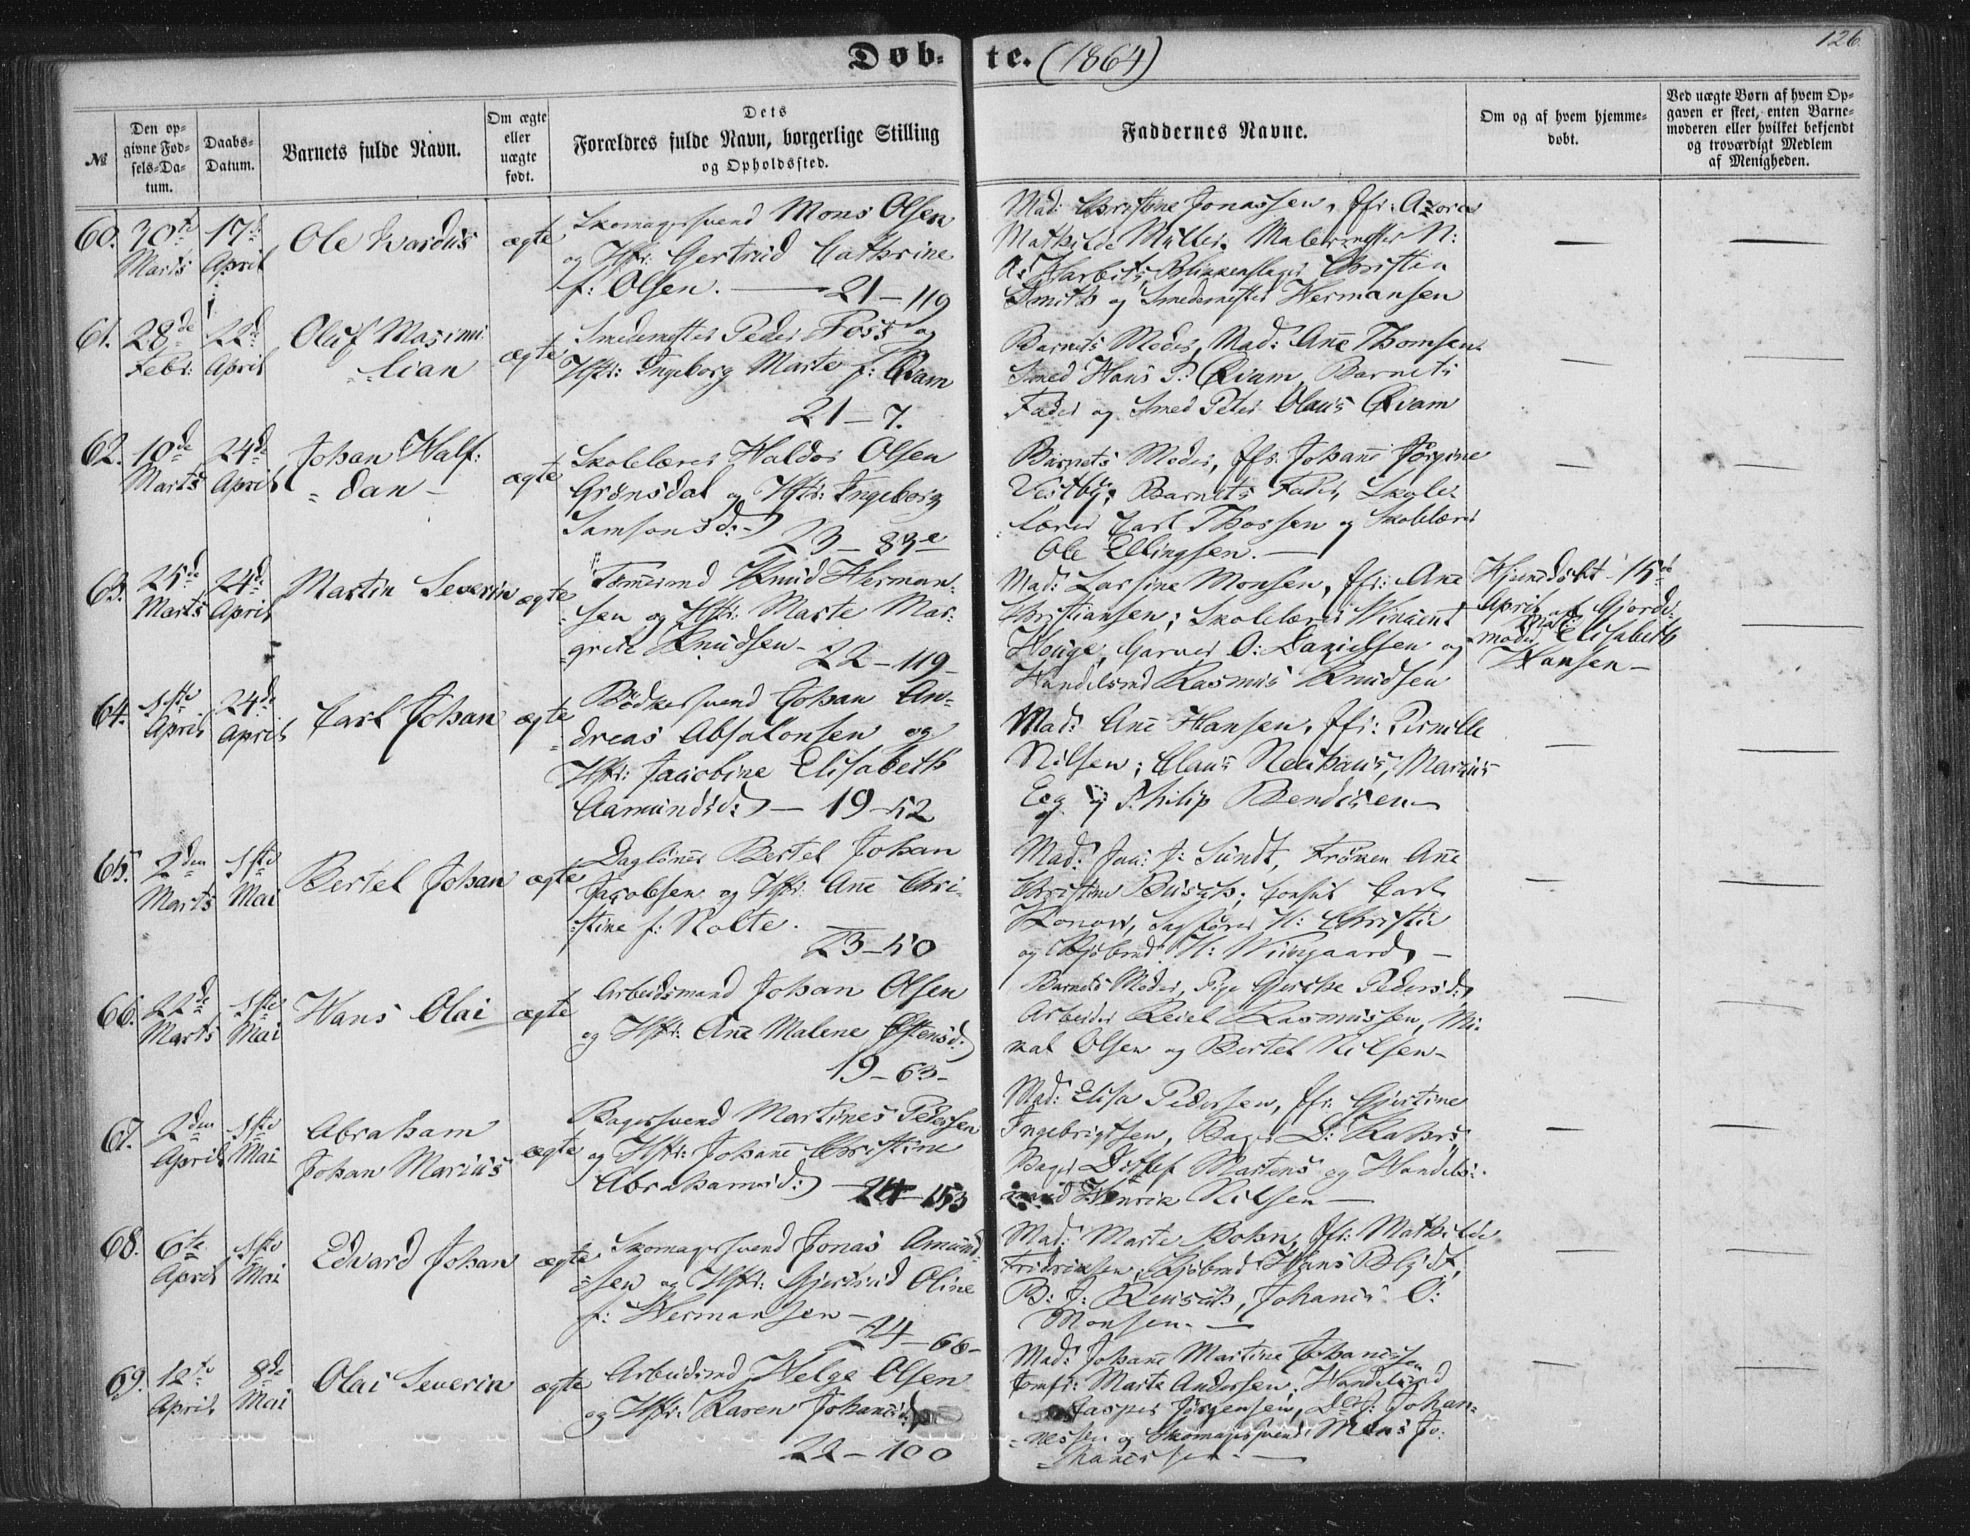 126.
Døb- te. (1864)
№
Den op-
givne Fød-
sels-Da-
tum.
Daabs-
Datum.
Barnets fulde Navn.
Om ægte
eller
uægte
født.
Dets
Forældres fulde Navn, borgerlige Stilling
og Opholdssted.
Faddernes Navne.
Om og af hvem hjemme-
døbt.
Ved uægte Børn af hvem Op-
gaven er skeet, enten Barne-
moderen eller hvilket bekjendt
og troværdigt Medlem
af Menigheden.
60. 30te 17de
Marts April
Ole
ægte
Skomagersvend Mons Olsen
og Hstr: Gertrud Cathrine
f: Olsen. — 21–119
Mad: Christine Jonassen, Jfr:
Mathilde Müller, Malermester N:
Blikkenslager Christian
Smith og Smedemester Hermansen
61. 28de 22de
Febr: April
Oluf Maximi
lian
ægte
Smedemester Peder Foss og
Hstr: Ingeborg Marte f: Qvam
21–7.
Barnets Moder, Mad: Ane Thomsen
Smed Hans P: Qvam, Barnets
Fader og Smed Peter Olaus Qvam
62. 10de 24de
Marts April
Johan Half-
dan –
ægte
Skolelærer Haldor Olsen
Grønsdal og Hstr: Ingeborg
Samsonsd:
23–83e
Barnets Moder, Jfr: Johane Jørgine
Vestby; Barnets Fader, Skole-
lærer Carl Thossen og Skolelærer
Ole Ellingsen. —
63. 25de 24de
Marts April
Martin Severin
ægte
Tømrmd Knud Herman-
sen og Hstr: Marte Mar-
grete Knudsen – 22–119–
Mad: Larsine Monsen, Jfr: Ane
Christiansen; Skolelærer Vincent
Houge, Garver O: Danielsen og
Handelsmd Rasmus Knudsen
Hjmdøbt 15de
April af Gjorde-
moder Mad: Elisabeth
Hansen –
64. 1ste 24de
April April
Carl Johan
ægte
Bødkersvend Johan An-
dreas Absalonsen og
Hstr: Jacobine Elisabeth
Aamundsd: – 19–52
Mad: Ane Hansen, Jfr: Pernille
Nilsen; Claus Neuhaus, Marius
Eeg og Philip Bendixen –
65. 2den 1ste
Marts Mai
Bertel Johan
ægte
Dagløner Bertel Johan
Jacobsen og Hstr: Ane Chri-
stine f: Nolte.
23–50
Mad: J: Sundt, Frøken Ane
Christine Busch; Consul Carl
Konow, Sagfører H: Christie
og Kjøbmd H: Wiingaard –
66. 22de 1ste
Marts Mai
Hans Olai
ægte
Arbeidsmand Johan Olsen
og Hstr: Ane Malene Østensd:
19–63–
Barnets Moder, Pige Gjertke Pedersd:
Arbeider Reiel Rasmussen, Mi-
kal Olsen og Bertel Nilsen –
67. 2den 1ste
April Mai
Abraham
Johan Marius
ægte
Bagersvend Martines Pedersen
og Hstr: Johane Christine
Abrahamsd: – 24–153
Mad: Elisa Pedersen, Jfr: Gjertine
Ingebrigtsen, Bager D: Kahrs,
Bager Ditlef Martens og Handels-
mand Henrik Nilsen —
68. 6te 1ste
April Mai
Edvard Johan
ægte
Skomagersvend Jonas Amund-
sen og Hstr: Gjertrud Oline
f: Hermansen –
24–66–
Mad: Marte Bohn, Jfr: Mathilde
Fridriksen; Kjøbmd Hans Blydt,
B: J: Reusch, Johanes O:
Monsen. —
69. 12te 8de
April Mai
Olai Severin
ægte
Arbeidsmd Helge Olsen
og Hstr: Karen Johanesd:
22–100
Mad: Johane Martine Johanesen
Jomfr: Marte Andersen; Handelsmd
Jasper Jørgensen, Johan-
nessen og Skomagersvend Mons Jo-
hanessen. —